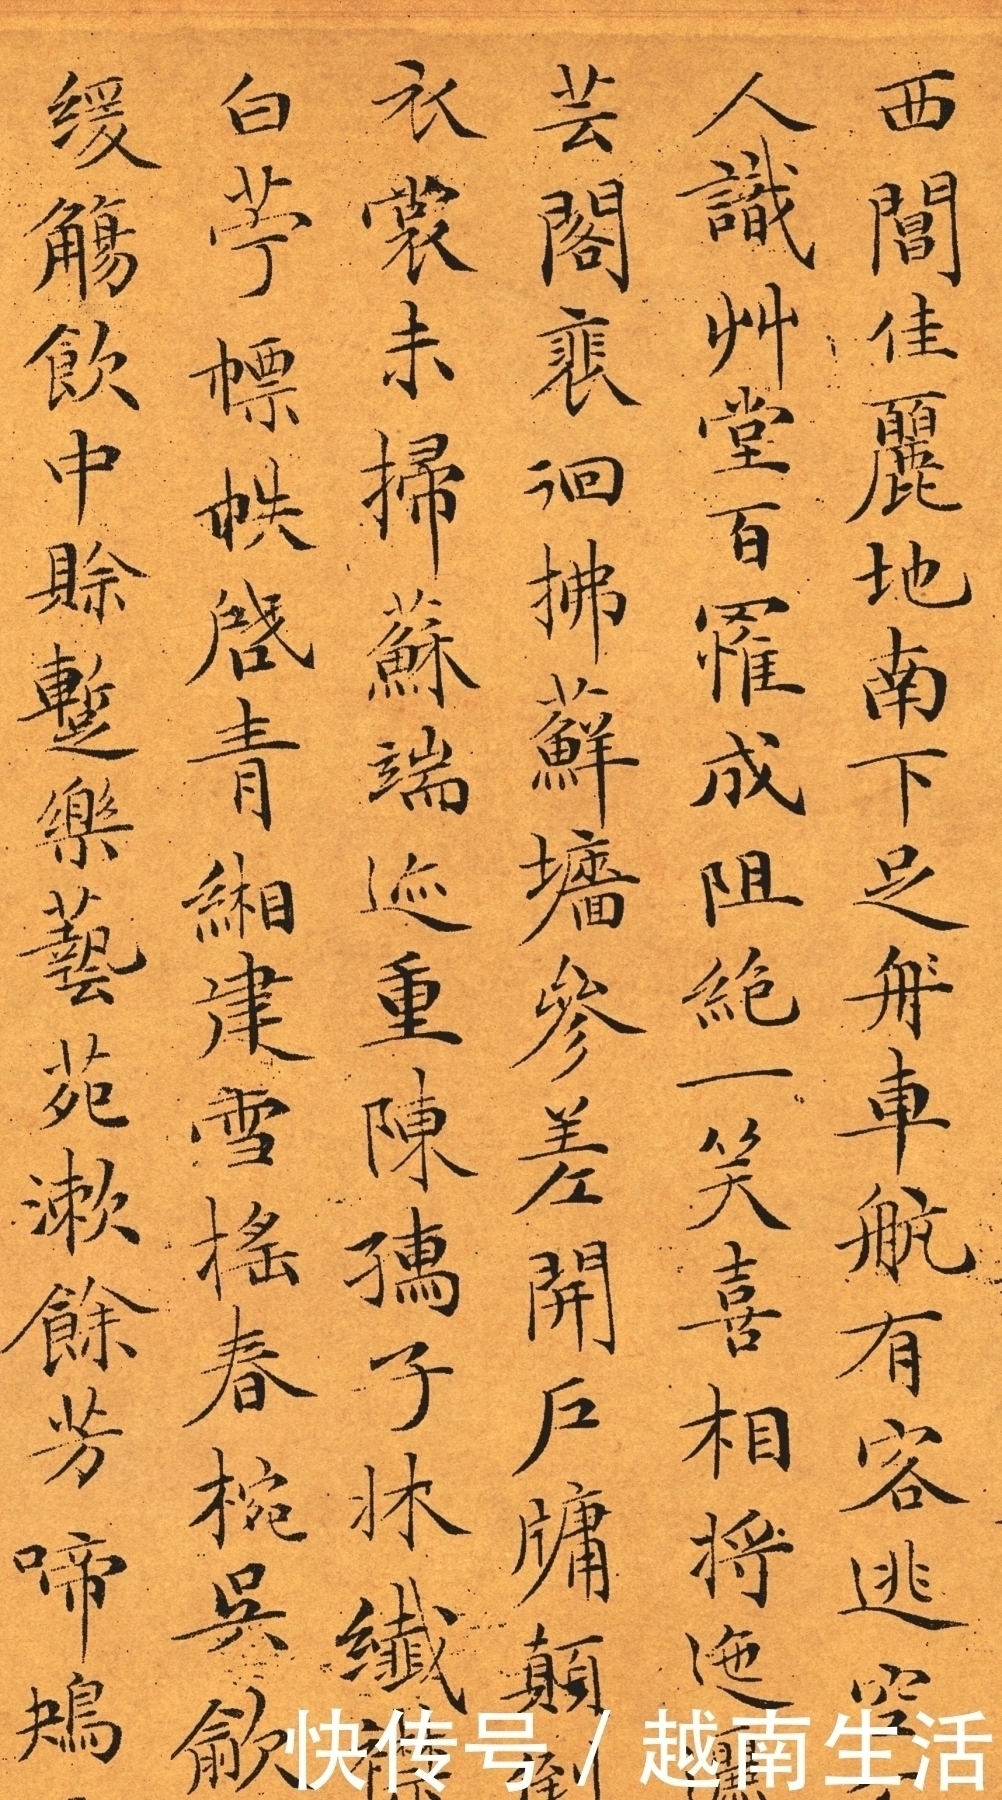 西閶佳麗地南下足舟車航有客逃空
人識艸堂百罹成阻絶一笑喜相將迤邐
芸閣裵徊拂蘚墻參差開戶牖顛倒
衣裳未掃蘇端迹重陳孺子牀纖襟
白苧幖帙啓青緗建雪搖春椀吳歈
緩觴飲中賒蹔樂藝苑漱餘芳啼鴂
快传号/越南生活